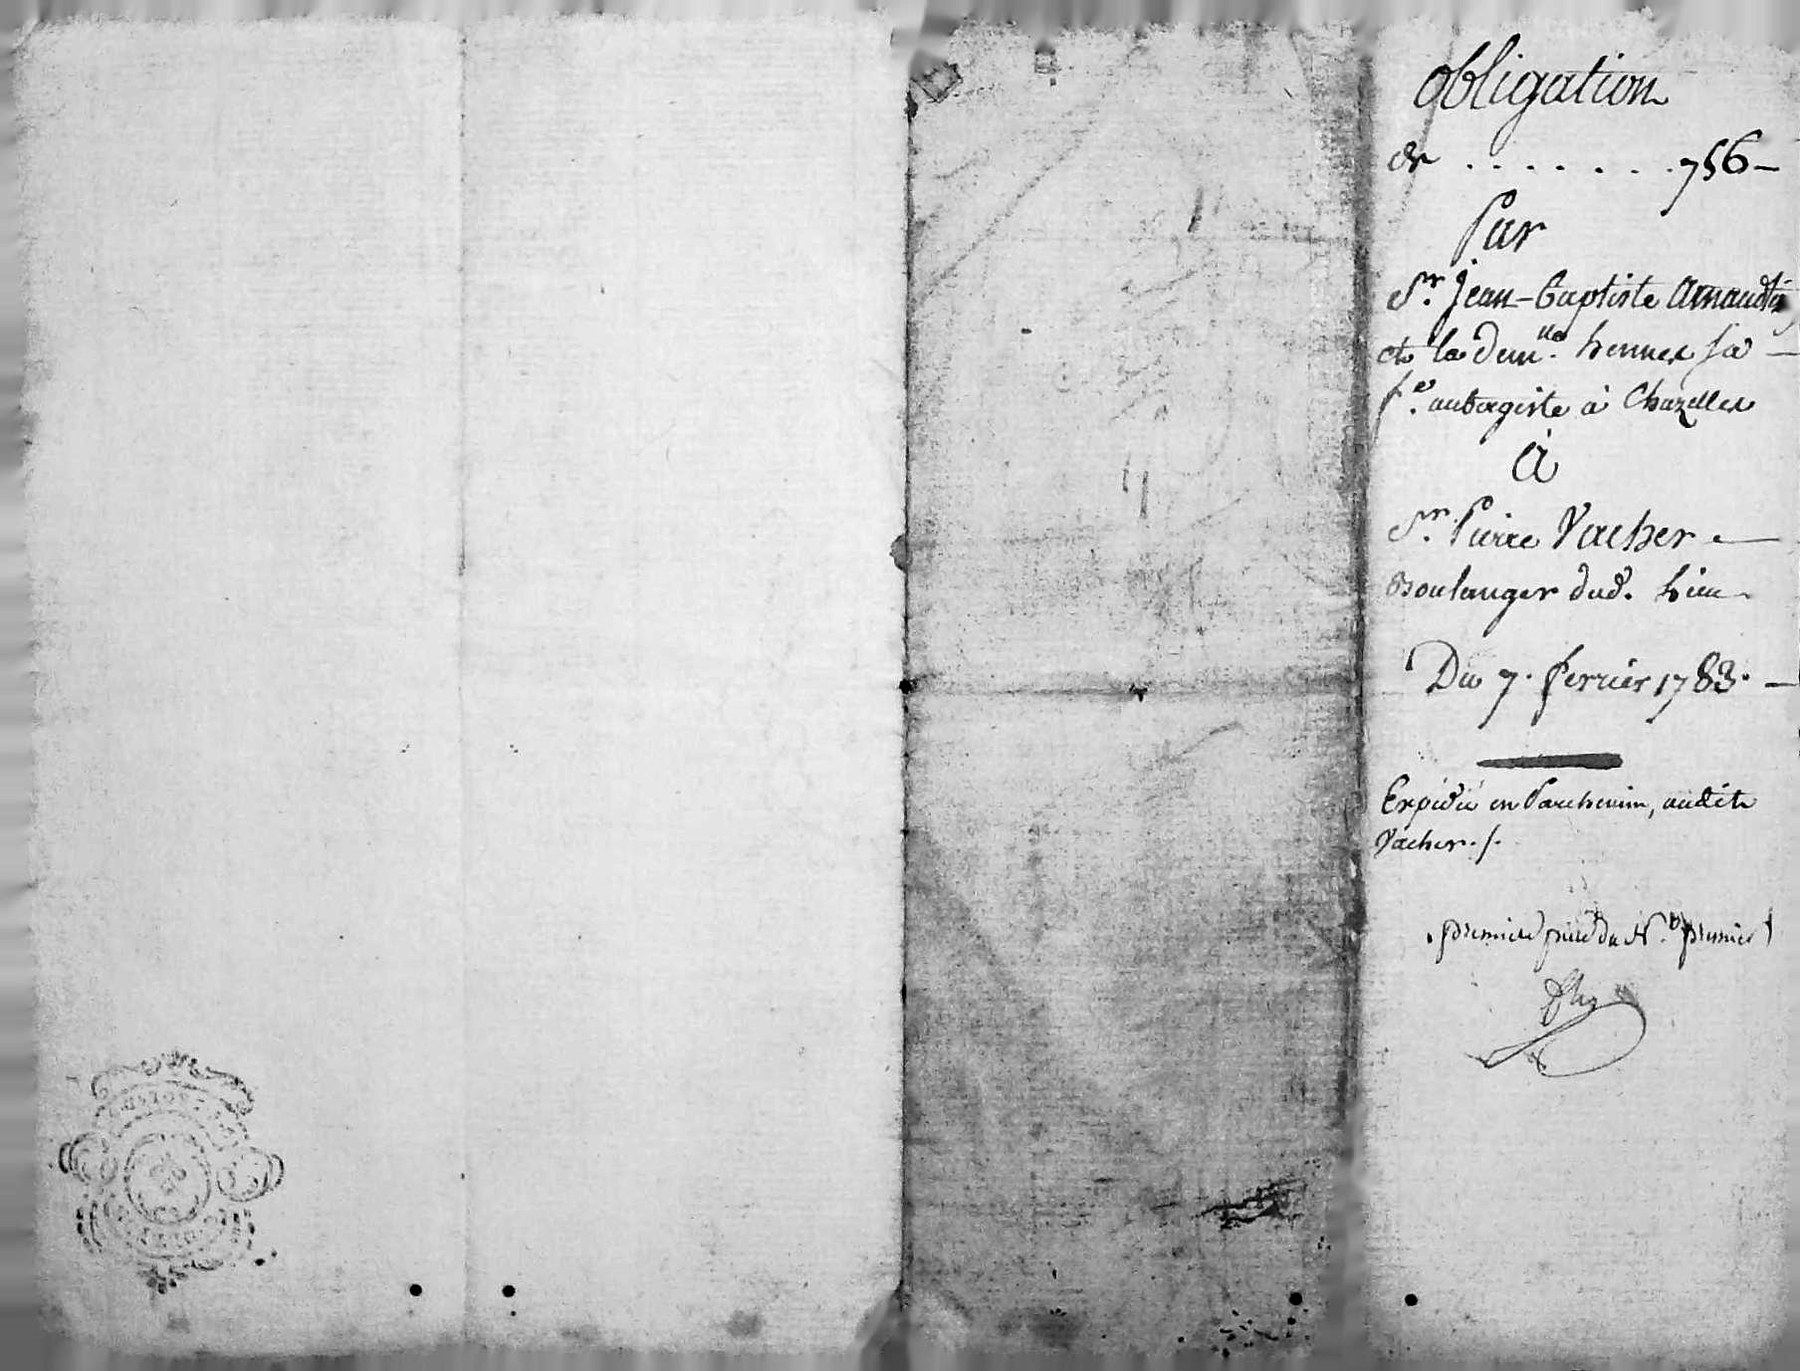 obligation
de . . . . . . . 756 –
Par
Sr. Jean-Baptiste
et la dem.lle sa –
f.e aubergiste à Chazelles
À
Sr. Pierre Vacher –
Boulanger dud. Lieu
Du 7. fevrier 1783. –
Expedié en Parchemin, audit
Vacher ./.
premiere piece du N.o premier